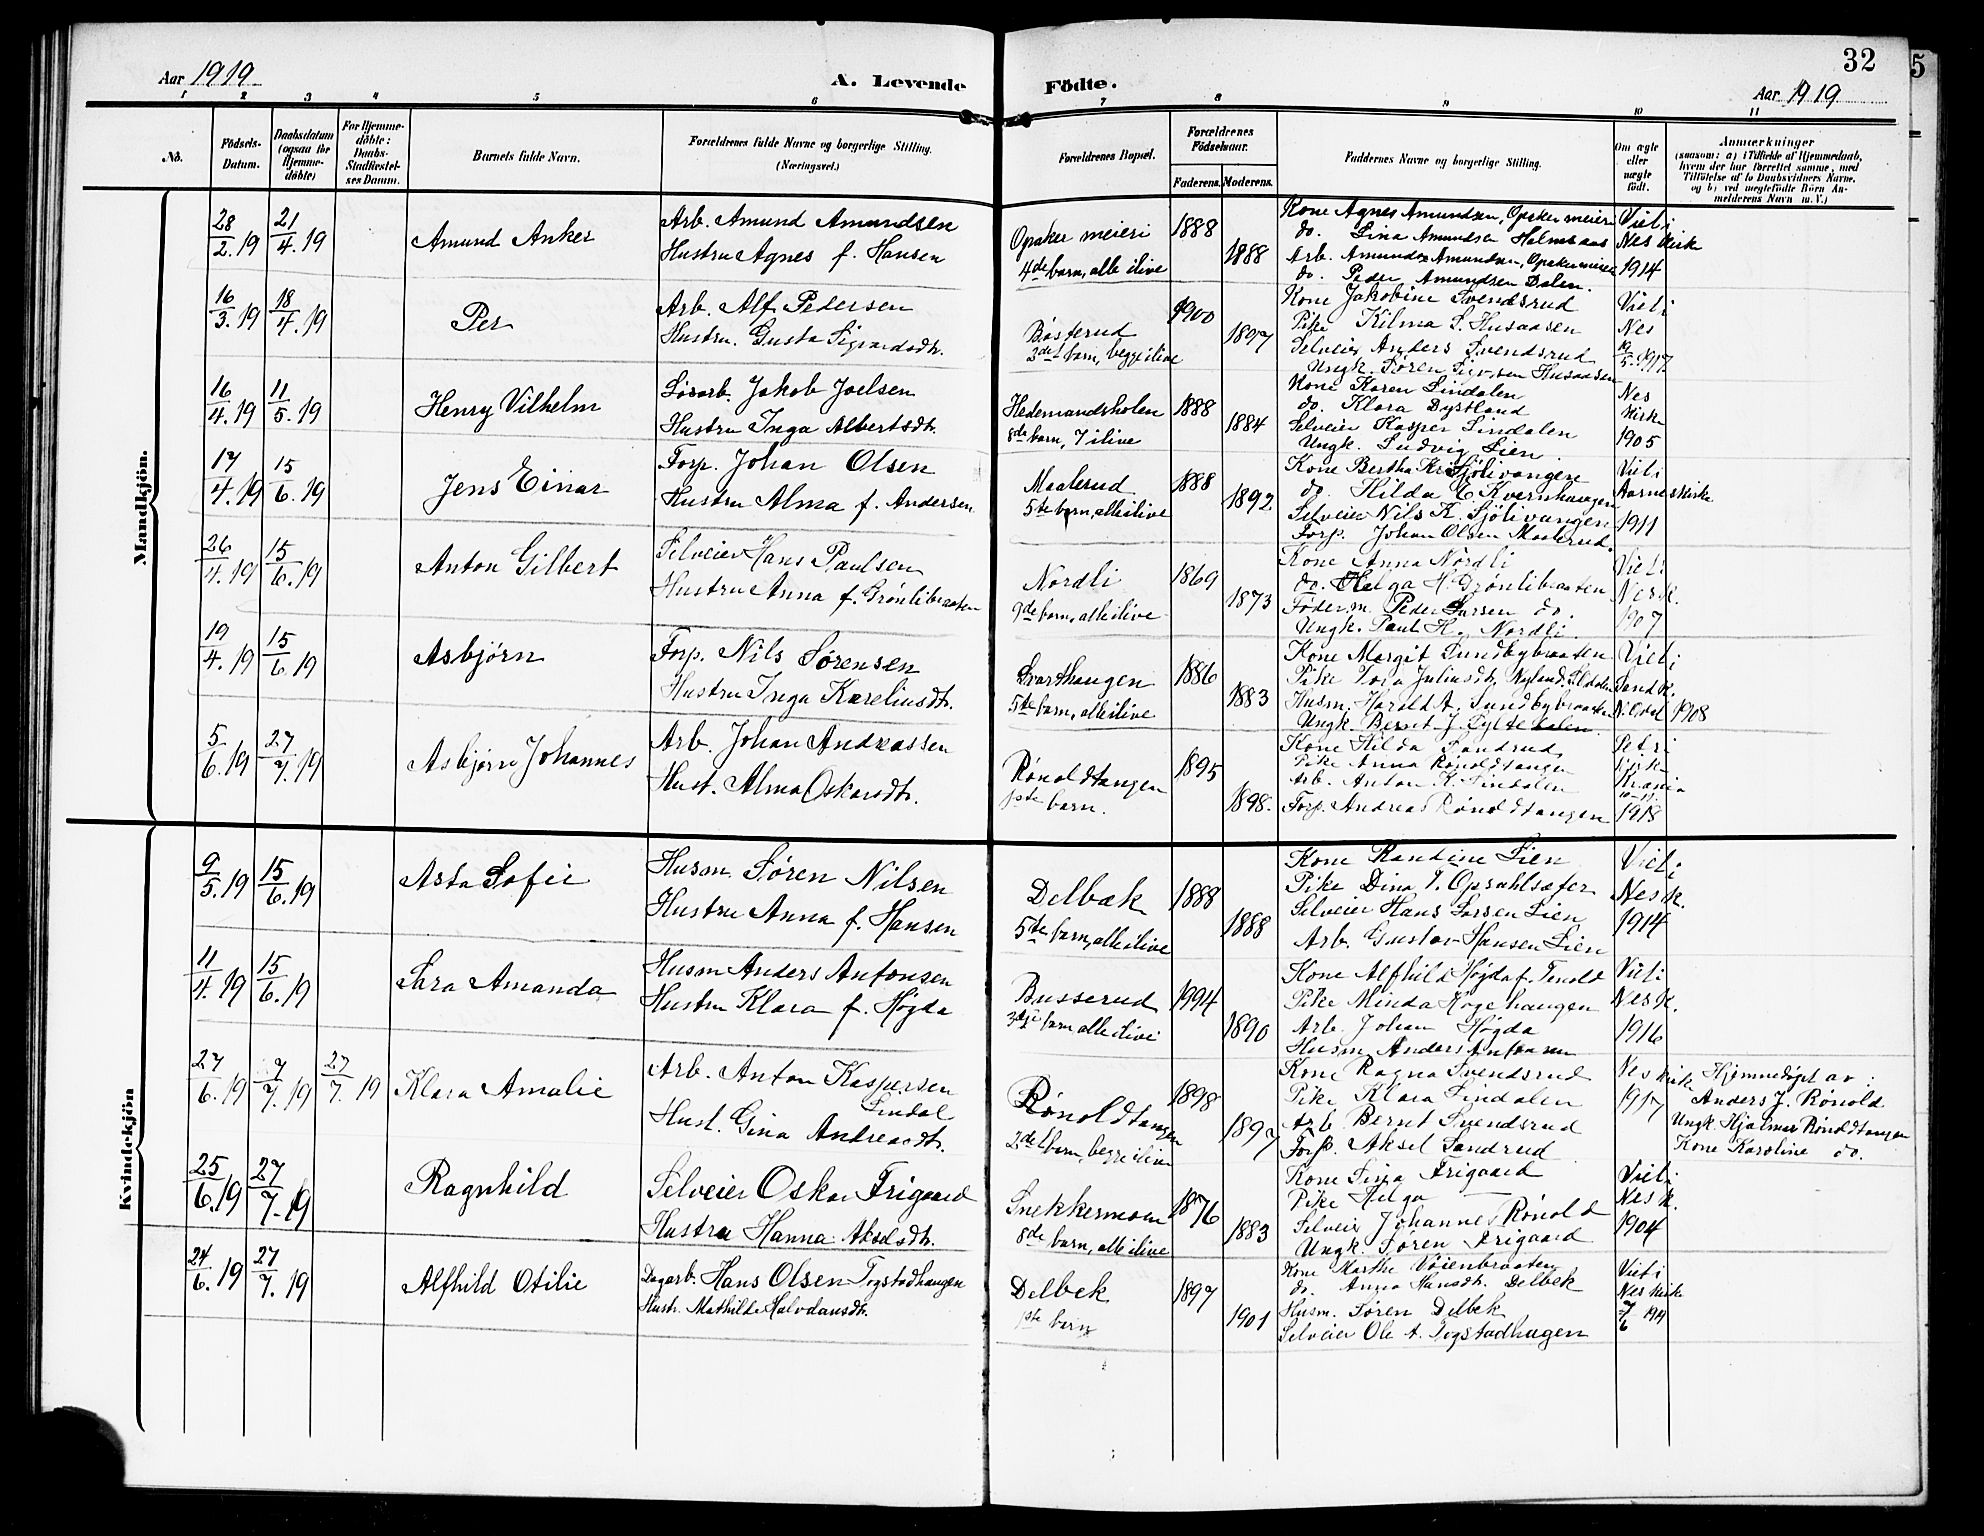 Aar 1919
A. Levende
Födte.
32
Aar 1919
1 2 3 4 5 6 7 8 9 10 11
No.
Födsels-Datum.
Daabsdatum (ogsaa for Hjemme-döbte)
For Hjemme-döbte: Daabs-Stadfæstel-ses Datum.
Barnets fulde Navn.
Forældrenes fulde Navne og borgerlige Stilling. (Næringsvei.)
Forældrenes Bopæl.
Forældrenes Födselsaar.
Faderens. Moderens.
Faddernes Navne og borgerlige Stilling.
Om ægte eller uægte födt.
Anmærkninger
(saasom: a) i Tilfælde af Hjemmedaab, hvem der har forrettet samme, med Tilföielse af to Daabsvidners Navne, og b) ved uægtefödte Börn An-melderens Navn m. V.)
Mandkjön.
28/2.19 21/4.19 Amund Anker
Arb. Amund Amundsen
Hustru Agnes f. Hansen
Opaker meieri
4de barn, alle ilive
1888 1888
Kone Agnes Amundsen, Opaker meieri
do. Lina Amundsen Holmsaas
Arb. Amund Amundsen, Opaker meieri
do. Peder Amundsen Dalen.
Viet i
Nes kirk
1914
16/3.19 18/4.19 Per
Arb. Alf Pedersen
Hustru. Gusta Sigvardsdtr.
Bøsterud
3det barn, begge ilive
1900 1897
Kone Jakobine Svendsrud
Pike Kilma S. Husaasen
Selveier Anders Svendsrud
Ungk. Søren Husaasen
Viet i
Nes
19/5 1917
16/4.19 11/5.19 Henry Vilhelm
Jakob Joelsen
Hustru Inga Albertsdtr.
Hedemandsholen
8de barn, 7 ilive
1888 1884
Kone Karen Lindalen
do. Klara Dystland
Selveier Kasper Lindalen
Ungk. Ludvig Lien
Nes
kirke
1905
17/4.19 15/6.19 Jens Einar
Forp. Johan Olsen
Hustru Alma f. Andersen
Maalerud
5te barn, alle ilive
1888 1892.
Kone Bertha Kr. Sjølivangen
do. Hilda E. Kvernhaugen
Selveier Nils K. Sjølivangen
Forp. Johan Olsen Maalerud.
Viet i
Aarnes kirke
1911
26/4.19 15/6.19 Anton Gilbert
Selveier Hans Paulsen
Hustru Anna f. Grønlibraaten
Nordli
9de barn, alle ilive
1869 1873
Kone Anna Nordli
do. Helga H. Grønlibraaten
Føderm. Peder Larsen do.
Ungk. Paul H. Nordli.
Viet i
Nes k.
1907
19/4.19 15/6.19 Asbjørn
Forp. Nils Sørensen
Hustru Inga Kareliusdtr.
Svarthaugen
5te barn, alle ilive
1886 1883
Kone Margit Sundbybraaten
Pike Juliusdtr. Nyland
Husm. Harald A. Sundbybraaten
Ungk. Bernt J.
Viet i
Sand k.
N. Odal 1908
5/6.19 27/7.19 Asbjørn Johannes
Arb. Johan Andreassen
Hust. Alma Oskarsdtr.
Rønoldtangen
1ste barn.
1895 1898.
Kone Hilda Sandrud
Pike Anna Rønoldtangen
Arb. Anton K. Lindalen
Forp. Andreas Rønoldtangen
Petri
kirke
Krania
1918
Kvindekjön
9/5.19 15/6.19 Asta Sofie
Husm. Søren Nilsen
Hustru Anna f. Hansen
Delbæk
5te barn, alle ilive
1888 1888
Kone Randine Lien
Pike Dina T. Opsahlsæter
Selveier Hans Larsen Lien
Arb. Gustav Hansen Lien
Viet i
Nes k.
1914
11/4.19 15/6.19 Sara Amanda
Husm Anders Antonsen
Hustru Klara f. Høgda
Busserud
3dje barn alle ilive
1994 1890
Kone Alfhild Høgda f. Tenold
Pike Minda Hagehaugen
Arb. Johan Høgda
Husm. Anders Antonsen
Viet i
Nes k.
1916
27/6.19 7/7.19 27/7.19 Klara Amalie
Arb. Anton Kaspersen
Lindal
Hust. Gina Andreasdtr.
Rønoldtangen
2det barn, begge ilive
1898 1897
Kone Ragna Svendsrud
Pike Klara Lindalen
Arb. Bernt Svendsrud
Forp. Aksel Sandrud
Nes kirke
1917
Hjemmedøpt av:
Anders J. Rønold
Ungk. Hjalmar Rønoldtangen
Kone Karoline do.
25/6.19 27/7.19 Ragnhild
Selveier Oskar Frigaard
Hustru Hanna Akselsdtr.
Snekkermoen
8de barn, alle ilive
1876 1883
Kone Frigaard
Pike Helga —
Selveier Johannes Rønold
Ungk. Søren Frigaard
Viet i
Nes k.
1904
24/6.19 27/7.19 Alfhild Otilie
Dagarb. Hans Olsen Togstadhaugen
Hustr. Mathilde Halvdansdtr.
Delbek
1ste barn
1897 1901
Kone Marthe Vøienbraaten
do. Anna Hansdtr. Delbek
Husm. Søren Delbek
Selveier Ole A. Togstadhagen
Viet i
Nes kirke
7/6 191